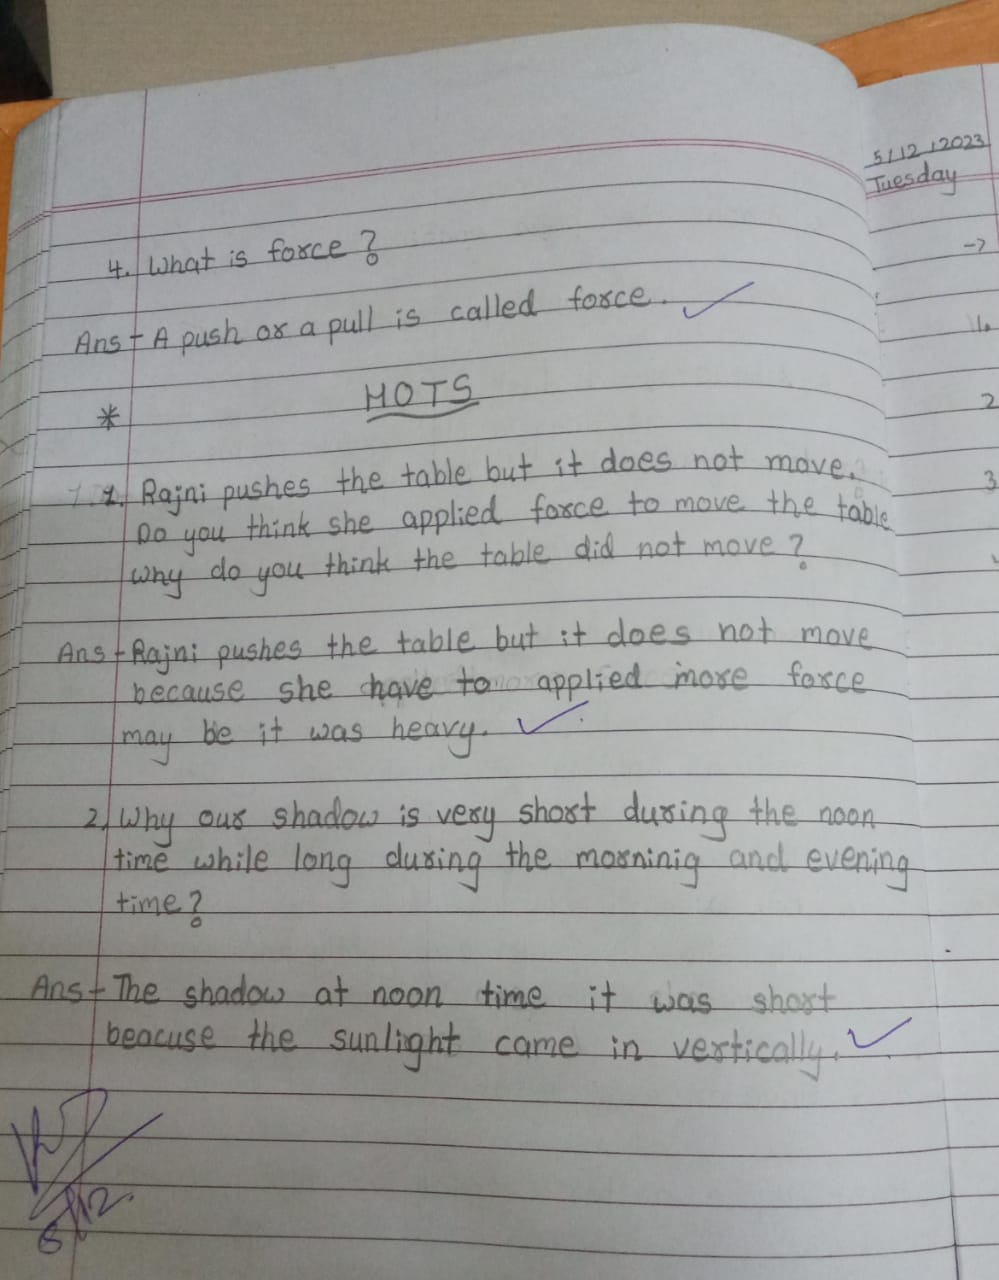 4. What is force?
Ans - A push or a pull is called force.
* HOTS
1. Rajni pushes the table but it does not move.
Do you think she applied force to move the table
why do you think the table did not move?
Ans - Rajni pushes the table but it does not move
because she have to applied more force
may be it was heavy.
2. Why our shadow is very short during the noon
time while long during the morninig and evening
time?
Ans - The shadow at noon time it was short
beacuse the sunlight came in vertically.
5/12/2023
Tuesday
1.
2
3